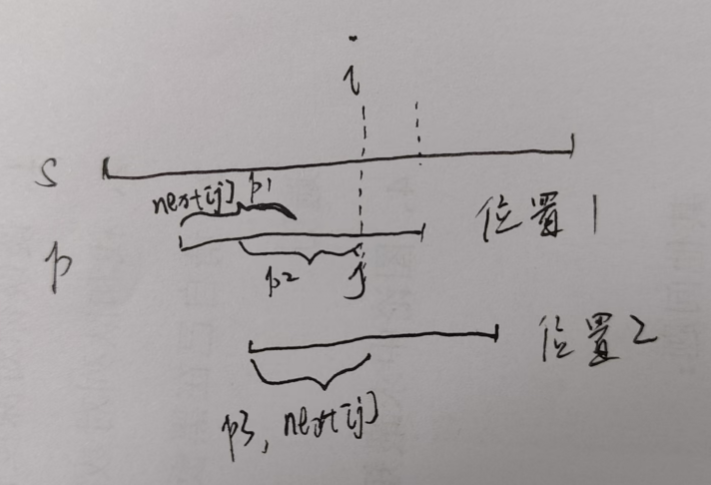 i
s
next[j] p1
位置1
p
p2
j
位置2
p3, next[j]